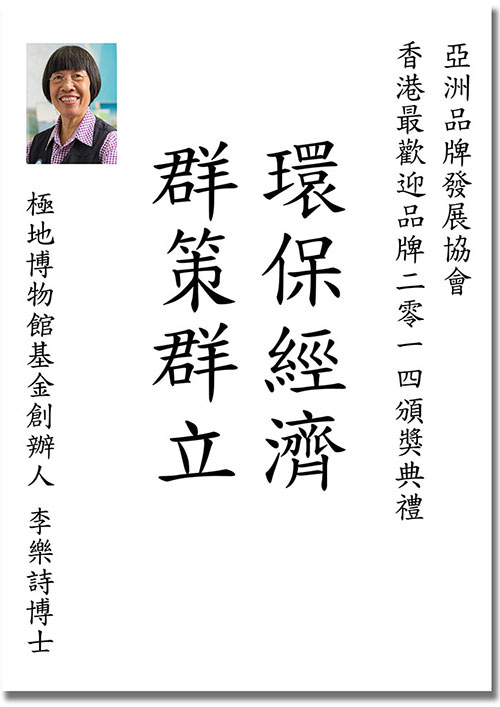 亞洲品牌發展協會
香港最歡迎品牌二零一四頒獎典禮
環保經濟
群策群立
極地博物館基金創辦人 李樂詩博士